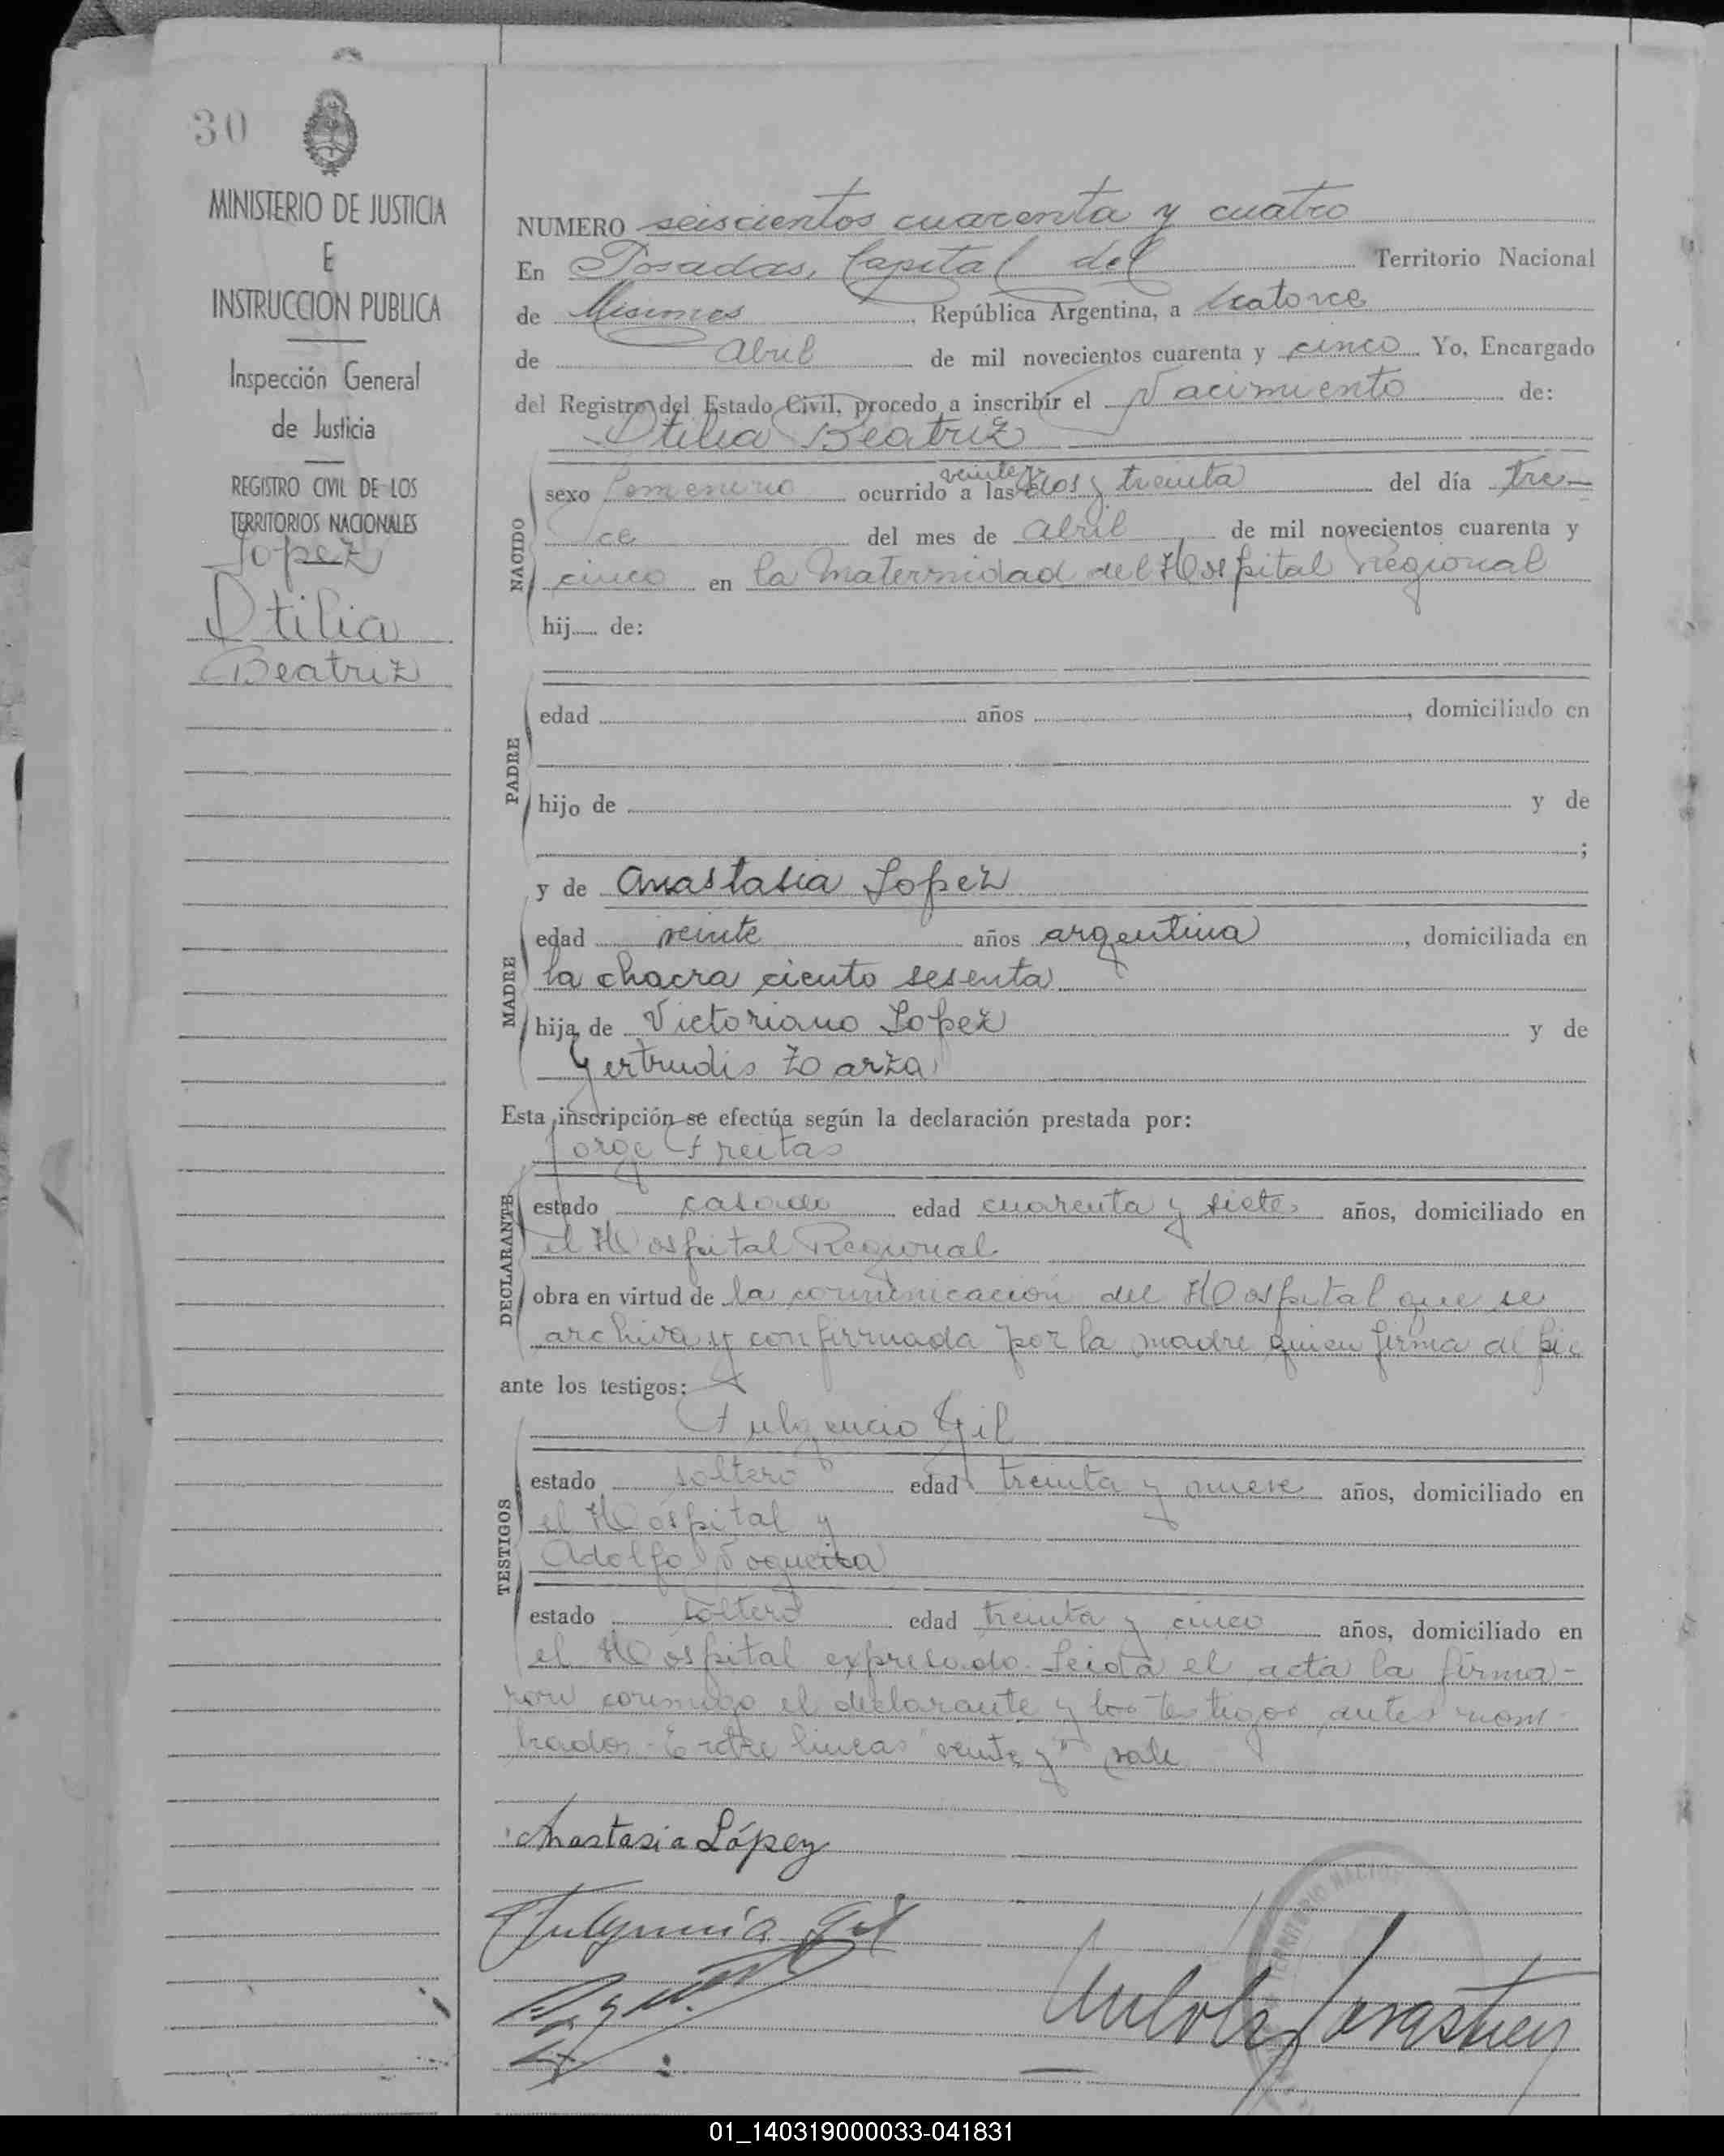 30
MINISTERIO DE JUSTICIA
E
INSTRUCCION PUBLICA
Inspección General
de Justicia
REGISTRO CIVIL DE LOS
TERRITORIOS NACIONALES
Lopez
Otilia
Beatriz
NUMERO seiscientos cuarenta y cuatro
En Posadas, Capital del Territorio Nacional
de Misiones, República Argentina, a catorce
de Abril de mil novecientos cuarenta y cinco Yo, Encargado
del Registro del Estado Civil, procedo a inscribir el Nacimiento de:
Otilia Beatriz
NACIDO
veinte y
sexo femenino ocurrido a las dos y treinta del día tre-
ce del mes de abril de mil novecientos cuarenta y
cinco en la Maternidad del Hospital Regional
hij..... de:
PADRE
edad años , domiciliado en
hijo de y de
;
y de Anastasia Lopez
MADRE
edad veinte años argentina, domiciliada en
la chacra ciento sesenta
hija de Victoriano Lopez y de
Gertrudis Zarza
Esta inscripción se efectúa según la declaración prestada por:
Jorge Freitas
DECLARANTE
estado casado edad cuarenta y siete años, domiciliado en
el Hospital Regional
obra en virtud de la comunicación del Hospital que se
archiva y confirmada por la madre quien firma al pie
ante los testigos:
Fulgencio Gil
TESTIGOS
estado soltero edad treinta y nueve años, domiciliado en
el Hospital y
Adolfo Nogueira
estado soltero edad treinta y cinco años, domiciliado en
el Hospital expresado. Leida el acta la firma-
ron conmigo el declarante y los testigos antes nom-
brados. Entre lineas "veinte y" vale
Anastasia López
Fulgencio Gil
TERRITORIO NACIONAL
01_140319000033-041831